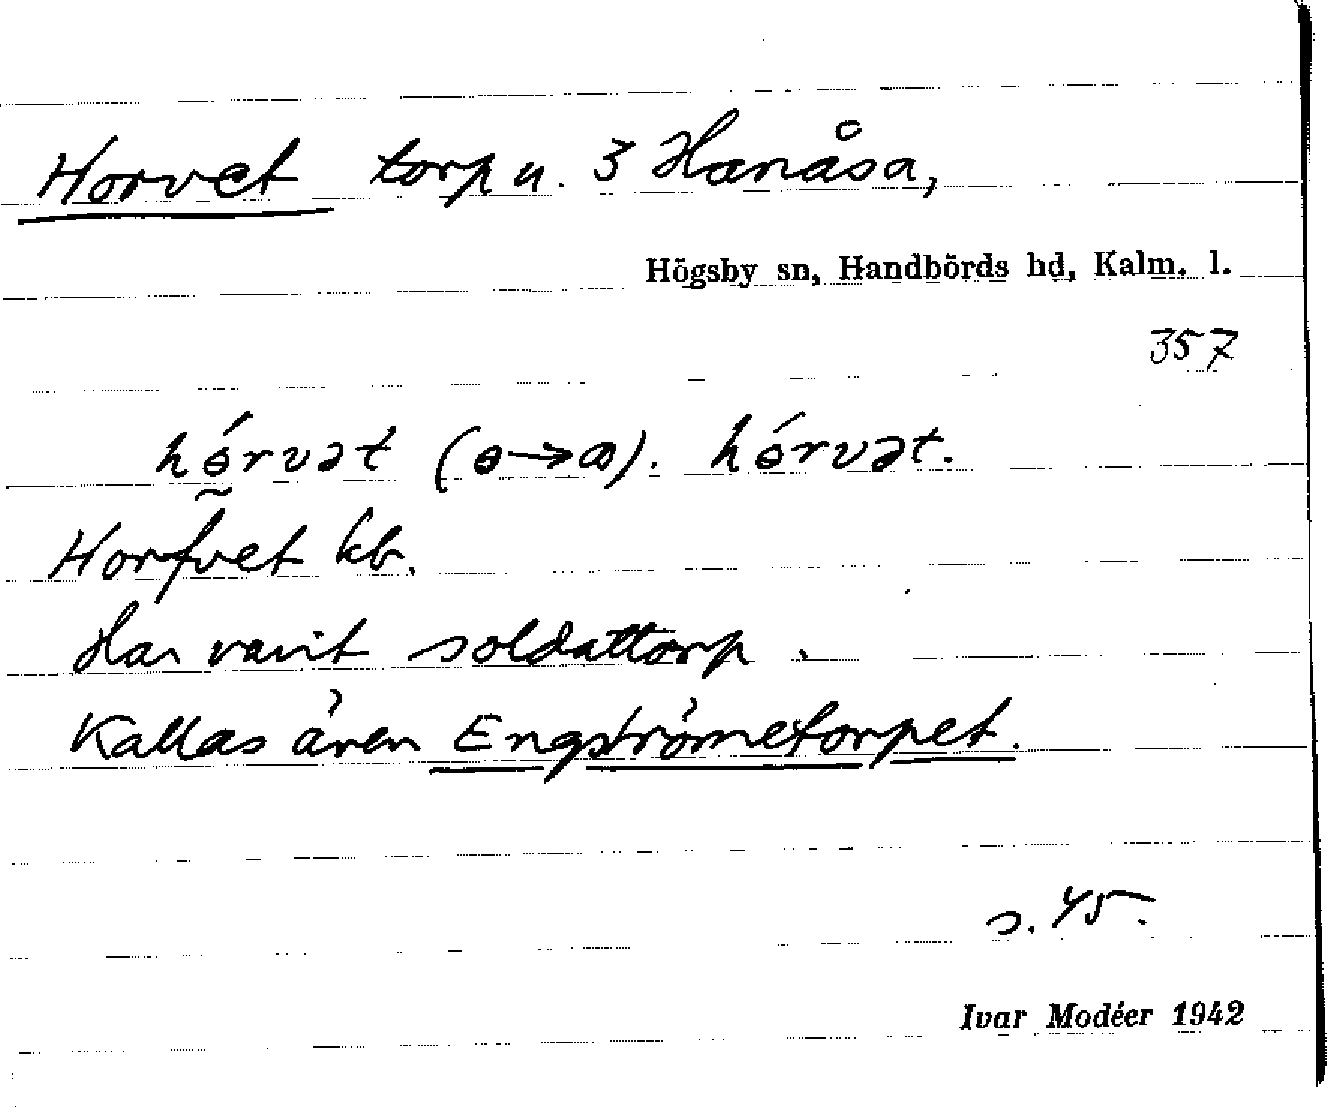 Horvet torp u. 3 Hanåsa,
Högsby sn, Handbörds hd, Kalm. l.
357
hɵ́rvət (ɵ→ꚙ). hɵ́rvət.
Horfvet kb.
Har varit soldattorp.
Kallas även Engströmetorpet.
s. 45.
Ivar Modéer 1942